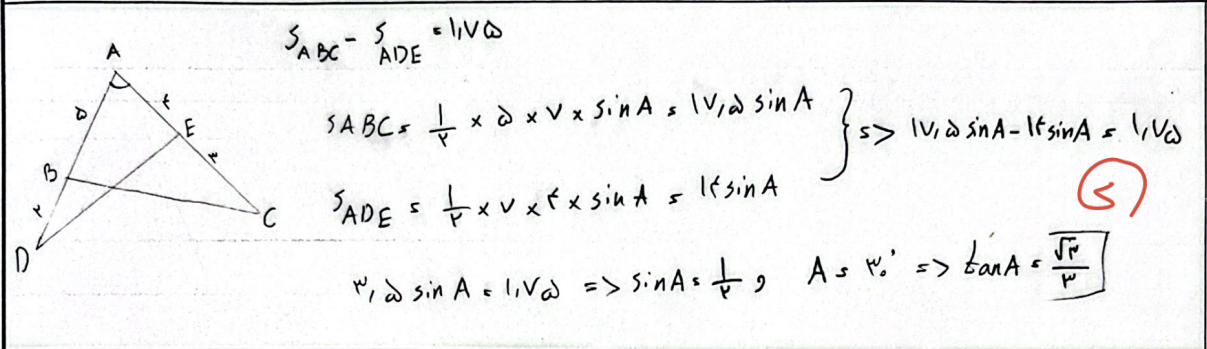 S_ABC - S_ADE = ۱,۷۵
A
۵
۴
E
۳
B
۲
C
D
SABC = ۱/۲ × ۵ × ۷ × sinA = ۱۷,۵ sinA
S_ADE = ۱/۲ × ۷ × ۴ × sinA = ۱۴ sinA
} => ۱۷,۵ sinA - ۱۴ sinA = ۱,۷۵
۳,۵ sinA = ۱,۷۵ => sinA = ۱/۲ و A = ۳۰° => tanA = √۳/۳